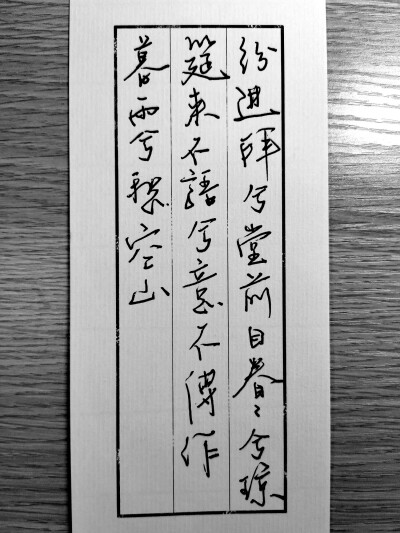 纷进拜兮堂前目眷〻兮琼
筵来不语兮意不传作
暮雨兮愁空山